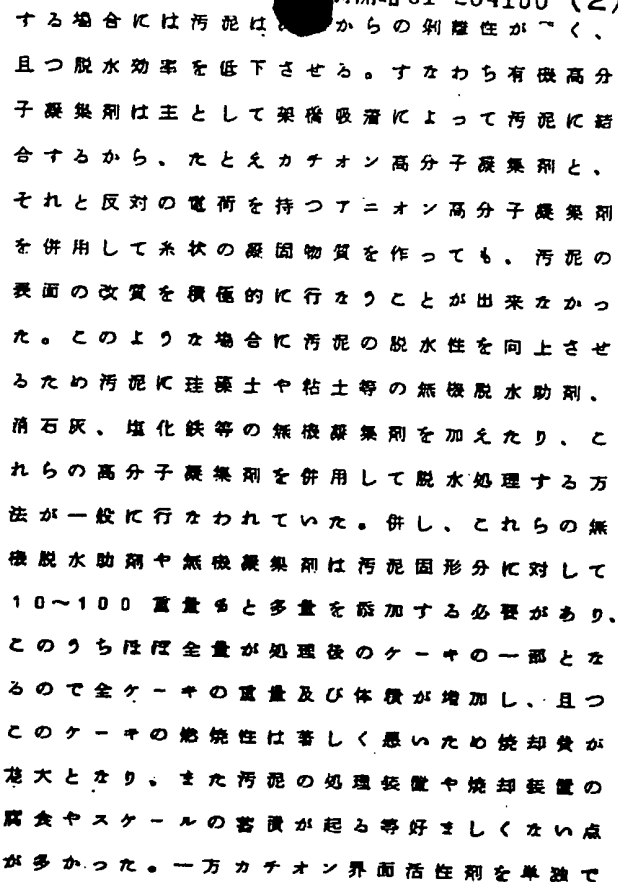 特開昭61-204100 (2)
する場合には汚泥は からの剥離性が く、
且つ脱水効率を低下させる。すなわち有機高分
子凝集剤は主として架橋吸着によって汚泥に結
合するから、たとえカチオン高分子凝集剤と、
それと反対の電荷を持つアニオン高分子凝集剤
を併用して糸状の凝固物質を作っても、汚泥の
表面の改質を積極的に行なうことが出来なかっ
た。このような場合に汚泥の脱水性を向上させ
るため汚泥に珪藻土や粘土等の無機脱水助剤、
消石灰、塩化鉄等の無機凝集剤を加えたり、こ
れらの高分子凝集剤を併用して脱水処理する方
法が一般に行なわれていた。併し、これらの無
機脱水助剤や無機凝集剤は汚泥固形分に対して
10~100重量%と多量を添加する必要があり、
このうちほぼ全量が処理後のケーキの一部とな
るので全ケーキの重量及び体積が増加し、且つ
このケーキの燃焼性は著しく悪いため焼却費が
莫大となり、また汚泥の処理装置や焼却装置の
腐食やスケールの蓄積が起る等好ましくない点
が多かった。一方カチオン界面活性剤を単独で